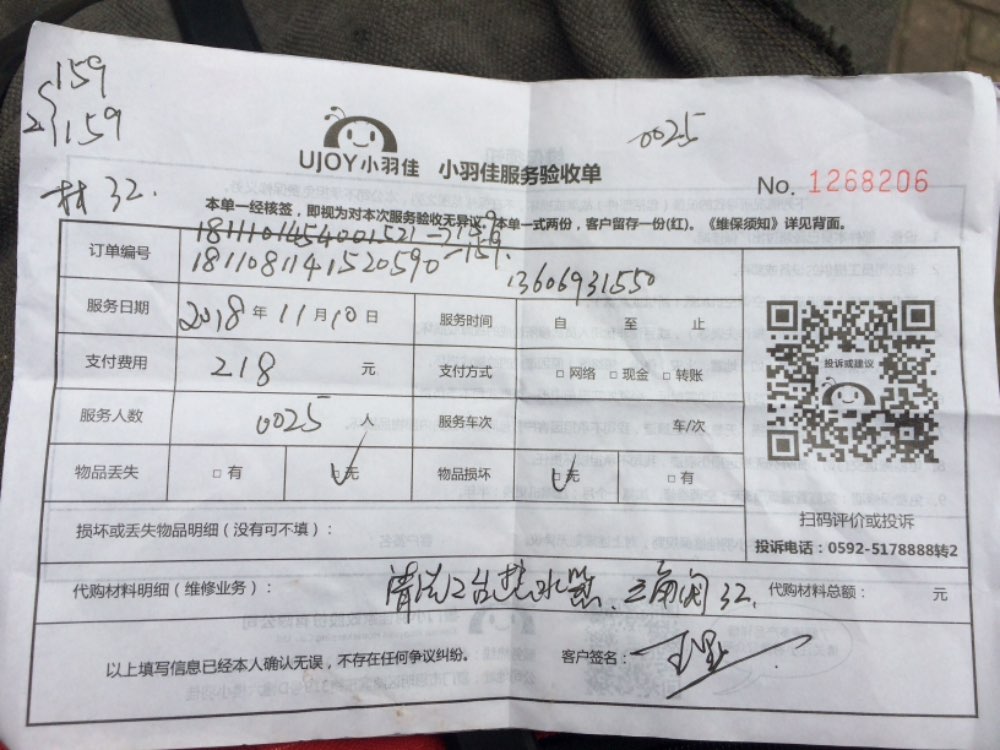 159
2 159
材 32.
0025
UJOY小羽佳 小羽佳服务验收单
No. 1268206
本单一经核签，即视为对本次服务验收无异议。本单一式两份，客户留存一份(红)。《维保须知》详见背面。
订单编号
1811081141520590 -159.
13606931550
服务日期 2018年11月10日 服务时间 自 至 止
支付费用 218 元 支付方式 □网络 □现金 □转账
投诉或建议
服务人数 0025 人 服务车次 车/次
物品丢失 □有 □无 物品损坏 □无 □有
扫码评价或投诉
损坏或丢失物品明细（没有可不填）：
投诉电话：0592-5178888转2
代购材料明细（维修业务）： 清洗2台热水器. 三角阀32. 代购材料总额： 元
以上填写信息已经本人确认无误，不存在任何争议纠纷。 客户签名：